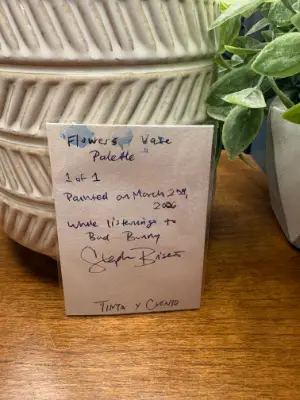 Flowers Vase
Palette
1 of 1
Painted on March
2026
While listening to
Bad Bunny
TINTA Y CUENTO